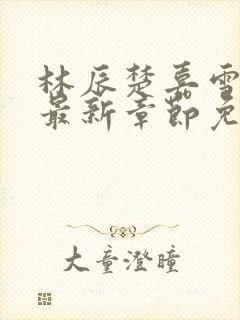 林辰楚嘉雪
最新章节免
大童澄瞳